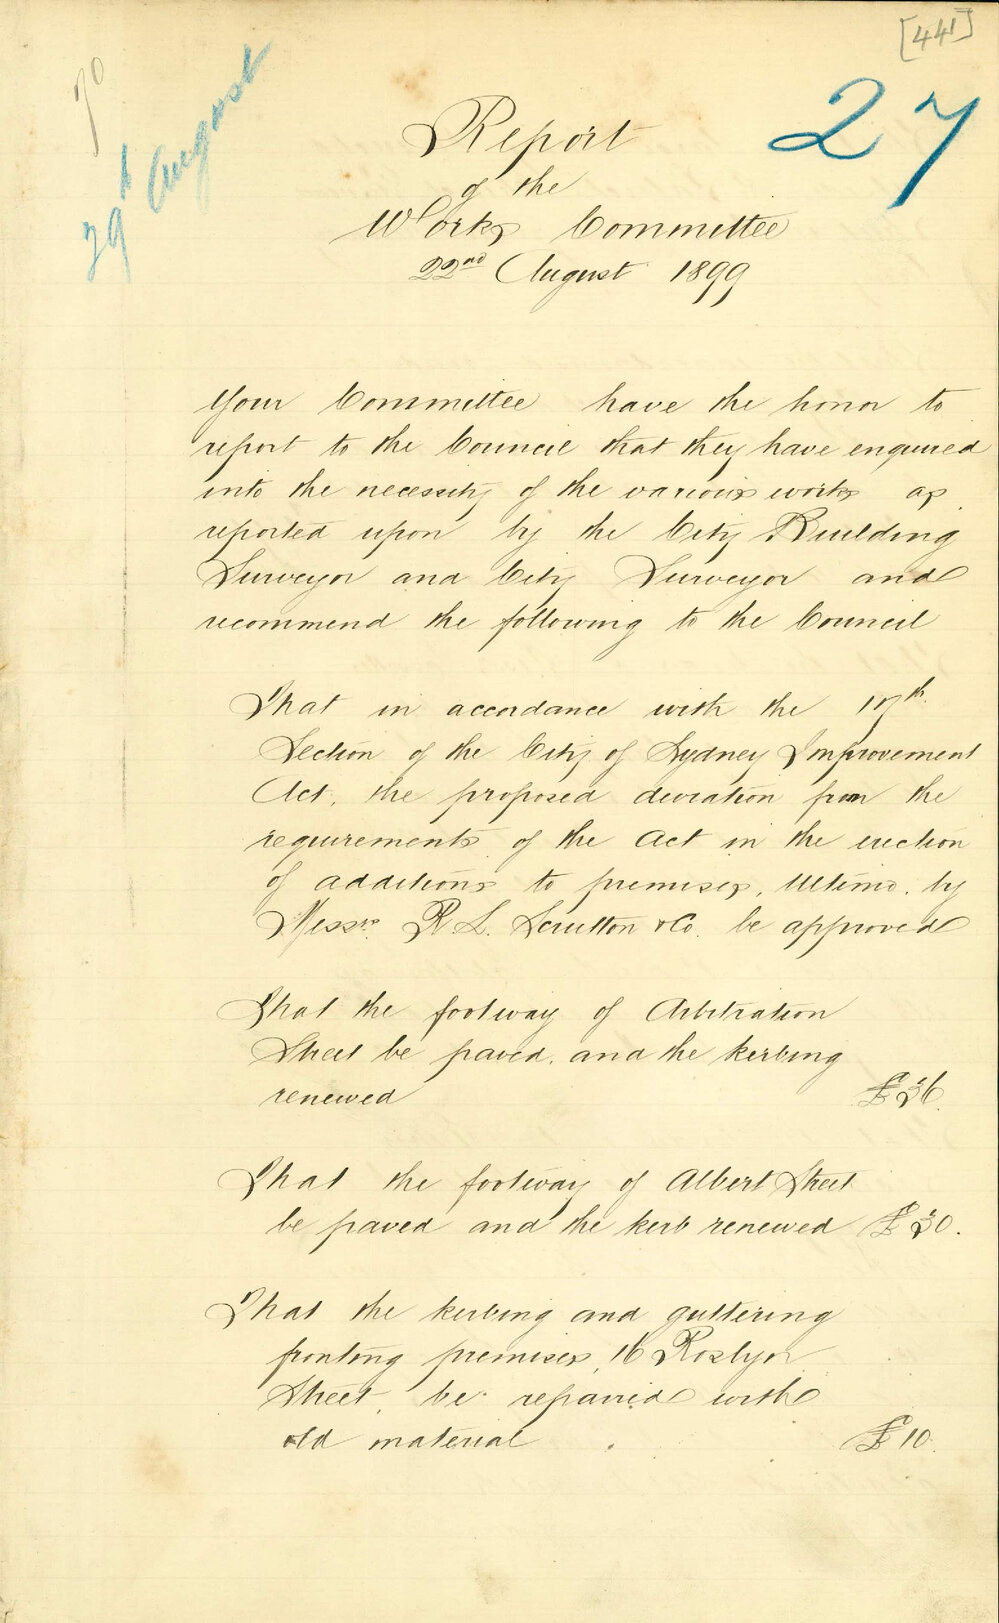 [441]
27
29th August
Report
of the
Works Committee
22nd August 1899
Your Committee have the honor to
report to the Council that they have enquired
into the necessity of the various works as
reported upon by the City Building
Surveyor and City Surveyor and
recommend the following to the Council
That in accordance with the 17th
Section of the City of Sydney Improvement
Act, the proposed deviation from the
requirements of the Act in the erection
of additions to premises, Ultimo, by
Messrs. R. L. Scrutton & Co. be approved
That the footway of Arbitration
Street be paved, and the kerbing
renewed £36.
That the footway of Albert Street
be paved and the kerb renewed £30.
That the kerbing and guttering
fronting premises, 16 Roslyn
Street, be repaired with
old material £10.